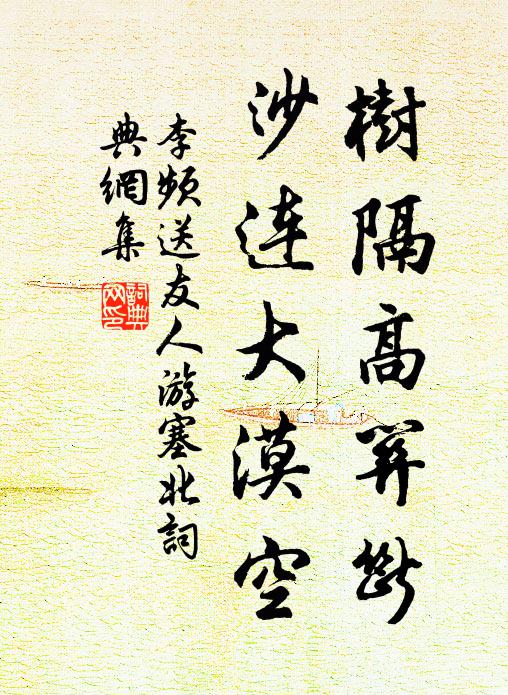 樹隔高關斷
沙連大漠空
李頻送友人游塞北詞
典網集
詞典
网印